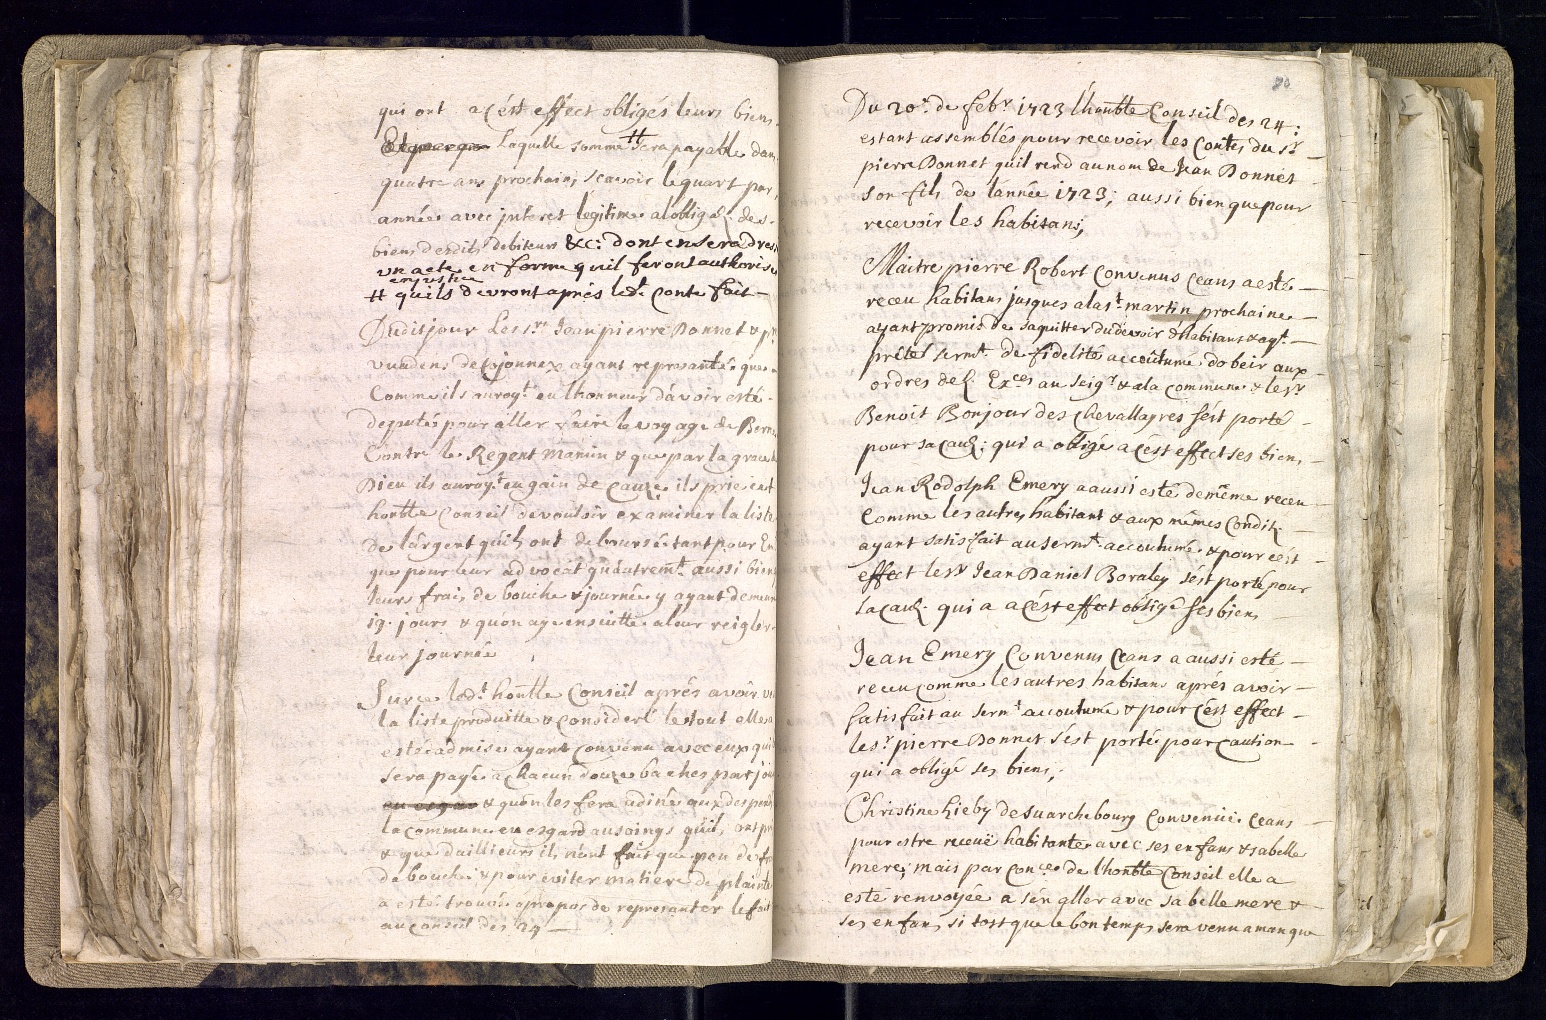 qui ont a cést efféct obligés leurs biens.
Laquelle somme # sera payable dans
quatre ans prochains scavoir le quart par
année avec interet légitime al'oblig͠: des
biens desdits debiteurs &c: dont en sera dres
un acte en forme qu'il feront authoriser
en justice
# quils devront aprés led.t conte fait —
Dudit jour Les s.rs Jean pierre Donnet &
ayant representé que
Comme ils auroy.t eu lhonneur d'avoir esté
deputés pour aller faire le voyage de Berne
Contre le Régent Manuin & que par la grace de
Dieu ils auroy.t eu gain de cauze, ils prieent
honble Conseil de vouloir examiner la liste
De lárgent quils ont deboursé tant pour
que pour leur advocát quáutrem.t aussi bien
leurs frais de bouche & journée y ayant demeuré
19. jours & quon aye ensuitte a leur reigler
leur journée
Sur ce led.t honble Conseil aprés avoir vu
la liste produitte & consideré le tout elle a
esté admise ayant convenu avec eux qui
sera payé a chacun douze baches par jour
& quón les fera a diné aux despends
la commune en esgard au soings quil, ont pri
& que dailleurs ils nónt fait que peu de fr
de bouche & pour éviter matiere de plainte
a esté trouvé apropos de representér le fait
au conseil des 24 —
Du 20.e de feb.r 1723 l'honble Conseil des 24:
estant assemblés pour recevoir les Contes du s.r
pierre Donnet quil rend au nom de Jean Donnet
son fils de lánnée 1723; aussi bien que pour
recevoir les habitans;
Maitre pierre Robert Convenus Ceans a esté
receu habitans jusques a la s.t martin prochaine
ayant promis de saquitter du devoir dhabitans & ay.t
prétés serm.t de fidelité accoûtumé dobeir aux
ordres de L. Ex.ces au seig.r & a la commune & le s.r
Benoit Bonjour des Chevallayres sést porté
pour sa cau͠: qui a obligé a cést effect ses biens
Jean Rodolph Emery a aussi esté de méme receu
Comme les autres habitant & aux mémes condi͠t
ayant satisfait au serm.t accoutumé & pour cést
effect le s.r Jean Daniel Boraley sést porté pour
sa cau͠. qui a a cést effect obligé ses biens
Jean Emery Convenus Ceans a aussi esté
receu comme les autres habitans aprés avoir
satisfait au serm.t accoutumé & pour cést effect
le s.r pierre Donnet sést porté pour caution
qui a obligé ses biens;
Christine Lieby de suarchebourg Convenüe Ceans
pour estre receuë habitante avec ses enfans & sa belle
mere, mais par con.ce de lhonble Conseil elle a
esté renvoyée a sén aller avec sa belle mere &
ses enfans si tost que le bon temps sera venu a manque